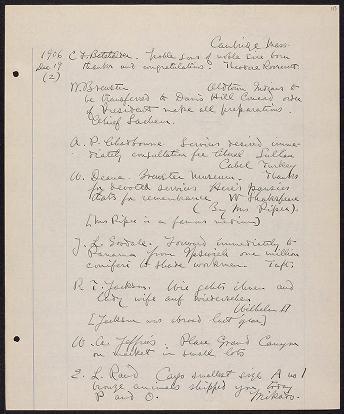 Cambridge Mass.
1906 C. F. Batchelder. Noble sons of noble sire born
Dec 19 thanks and congratulations. Theodore Roosevelt.
(2)
W. Brewster Oldtown Indians to
be transferred to Davis Hill Concord order
of President make all preparations.
Chief Sachem.
A. P. Chadbourne. Services desired imme-
diately consultation fee liberal Sultan
Cabul Turkey
W. Deane. Brewster Museum. Thanks
for devoted services Here's pansies
that's for remembrance W Shakspeare
(By Mrs Piper).
[Mrs Piper is a famous medium]
J. L. Goodale. Forward immediately to
Panama from Ipswich one million
conifers to shade workmen Taft.
R. T. Jackson. Wie gehts ihnen and
lady wife auf wiedersehen
Wilhelm II
[Jackson was abroad last year]
W. A. Jeffries. Place Grand Canyon
on market in small lots
E. L. Rand Cargo smallest size A no 1
bronze animals shipped you today
P and O. Mikado.